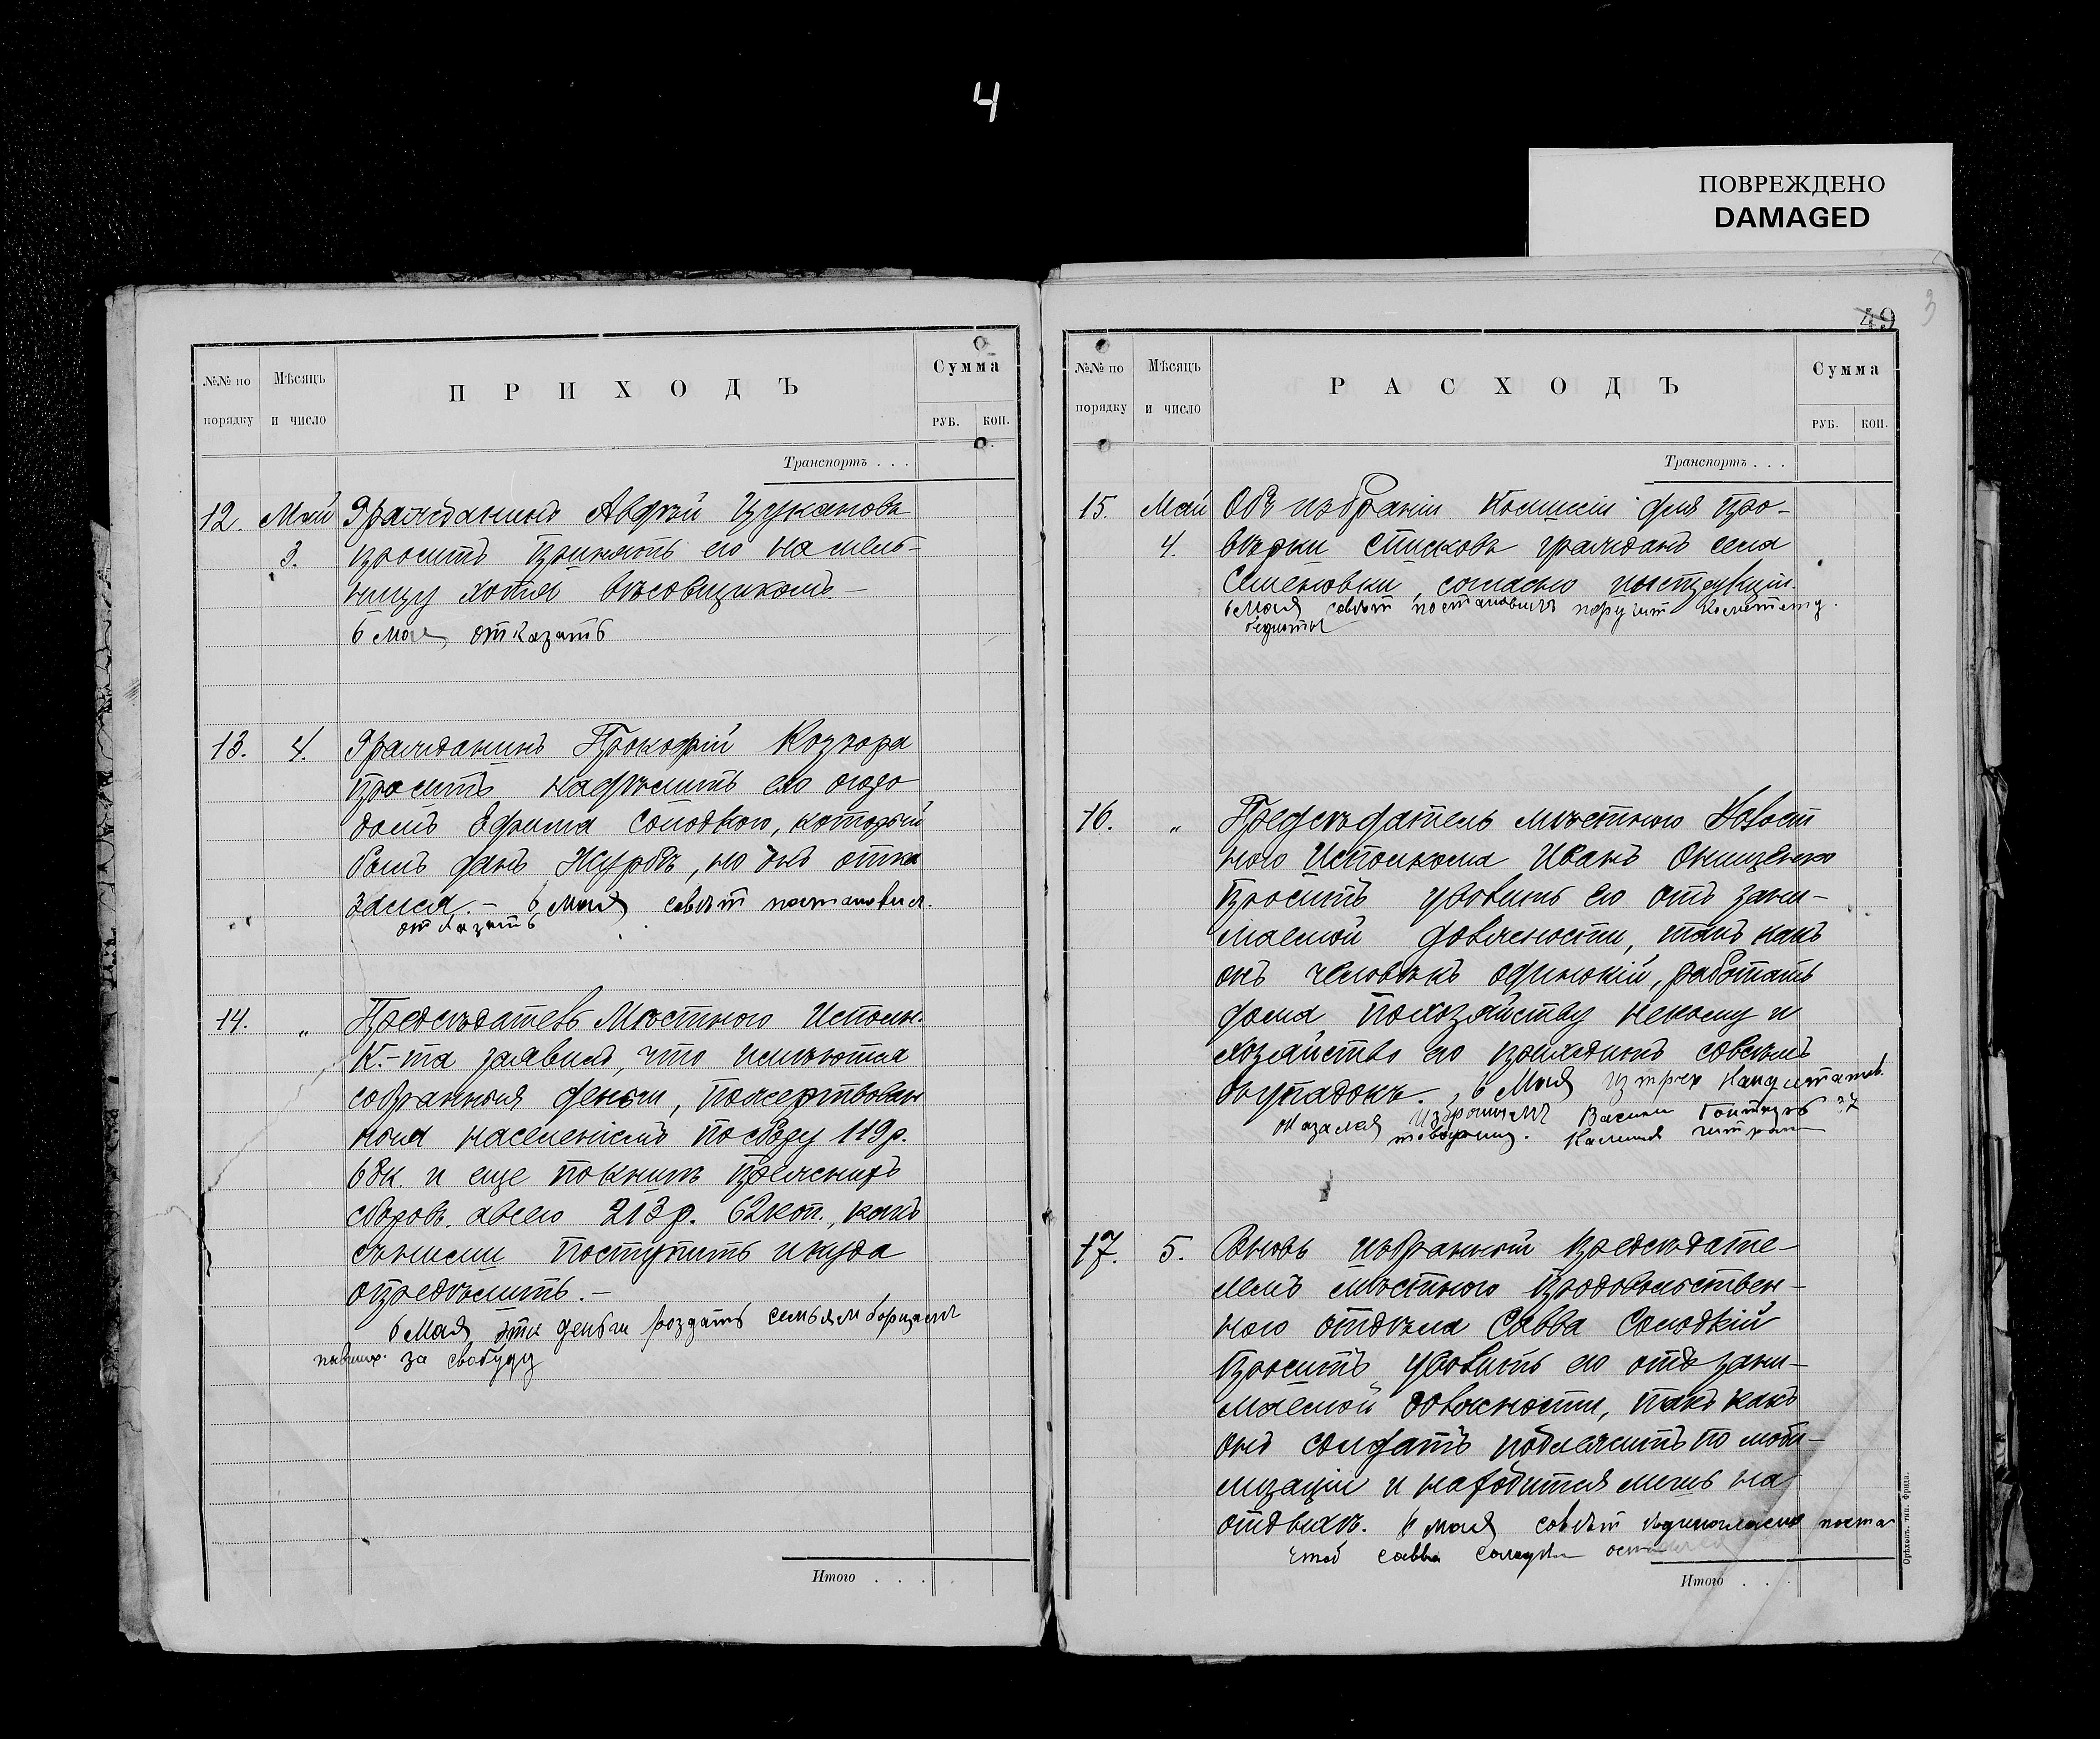 4
ПОВРЕЖДЕНО
DAMAGED
№№ по порядку
Мѣсяцъ и число
ПРИХОДЪ
Сумма
РУБ. КОП.
Транспортъ . . .
12. Май 3. Гражданинъ Авдѣй Цукановъ
проситъ принять его на мель-
ницу хотя вѣсовщикомъ.-
6 мая, отказать
13. 4. Гражданинъ Прокофій
проситъ надѣлить его огоро
домъ Ефима Солодкого, который
былъ данъ Журбѣ, но онъ отка
зался.- 6 мая совѣт постановил.
отказать
14. „ Предсѣдатель Мѣстного Исполн.
К.-та заявилъ, что имѣются
собранныя деньги, пожертвован
ныя населеніемъ по сбору 119 р.
68к. и еще по книгѣ прежнихъ
сборовъ. авсего 213 р. 62 коп., какъ
съ ними поступить и куда
опредѣлить.-
6 Мая, эти деньги роздать семьям борцами
павших. за свабуду
Итого . . .
49
3
№№ по порядку
Мѣсяцъ и число
РАСХОДЪ
Сумма
РУБ. КОП.
Транспортъ . . .
15. Май 4. Объ избраніи Комиссіи для про-
вѣрки списковъ гражданъ села
Семеновки, согласно инструкціи.
6 мая совѣт постановил поручит Комитету.
бедноты
16. „ Предсѣдатель мѣстного Волост
ного Исполкома Иванъ Онищенко
проситъ уволить его отъ зани-
маемой должности, такъ какъ
онъ человѣкъ одинокій, работать
дома похозяйству некому и
хозяйство его приходитъ совсѣмъ
вупадокъ. , 6 Мая из трех кандитатов.
Васили
17. 5. Вновь избранный предсѣдате-
лемъ мѣстного продовольствен-
ного отдѣла Савва Солодкій
проситъ уволить его отъ зани-
маемой должности, такъ какъ
онъ солдатъ подлежитъ по моби-
лизаціи и находится лишь на
отдыхѣ. 6 мая совѣт единогласно поста
чтоб Савва остался
Итого . . .
Орѣховъ. тип. Фрида.